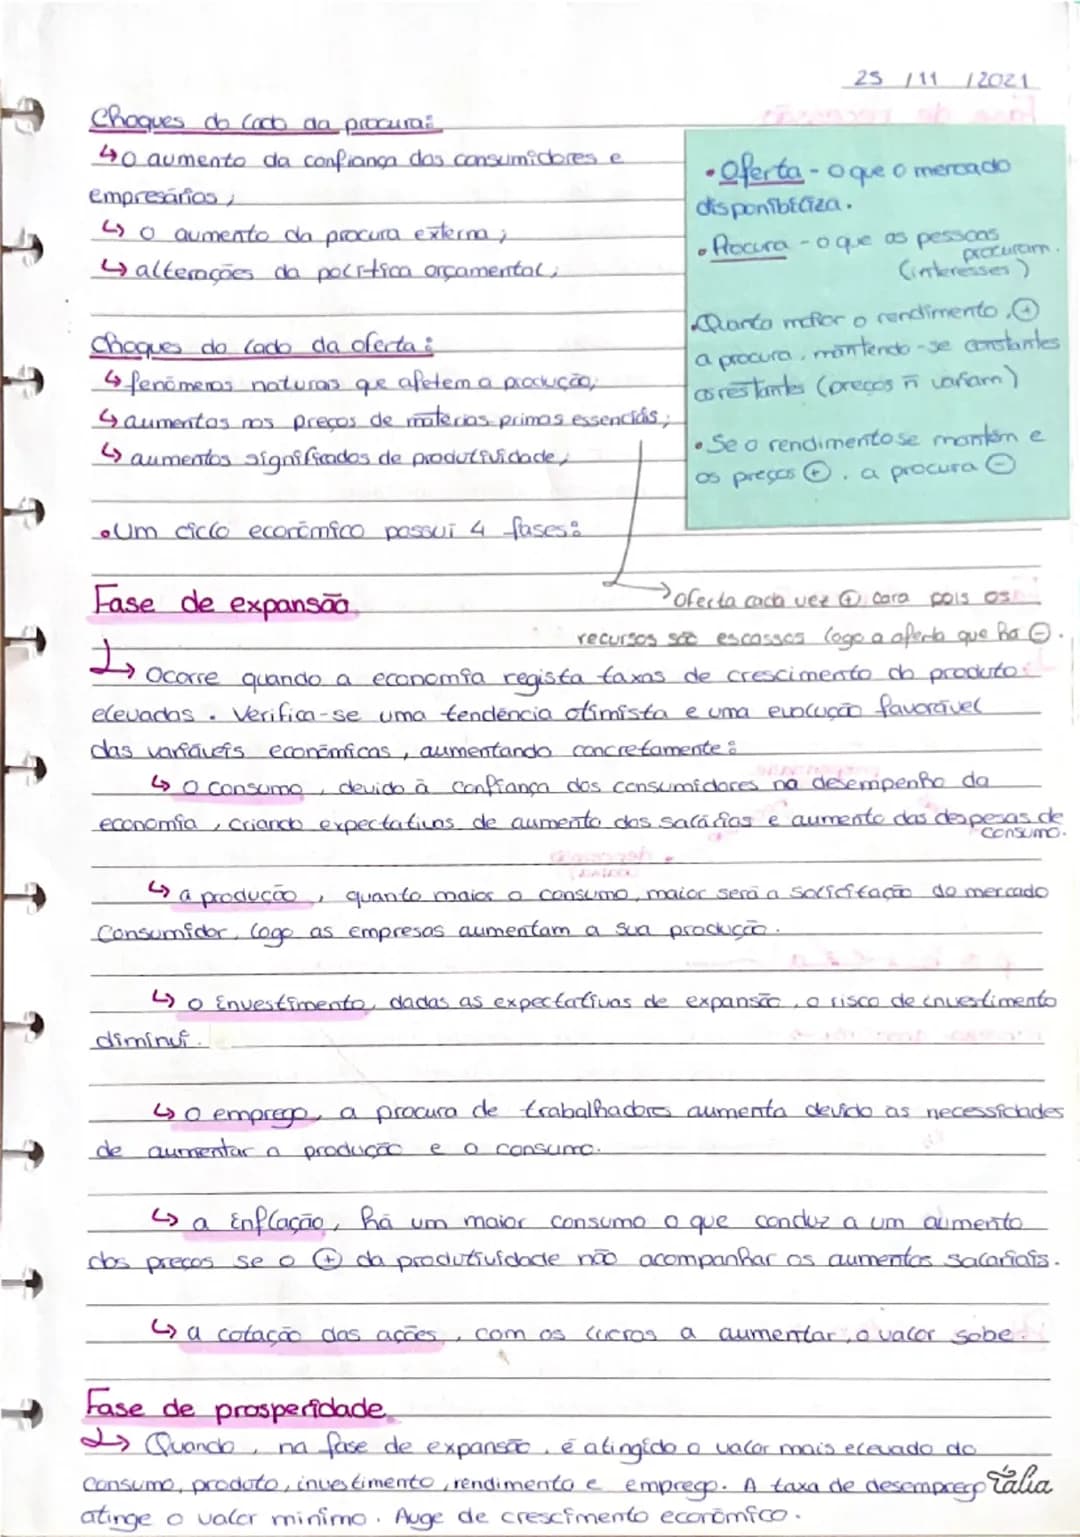 25 / 11 / 2021
Choques do lado da procura:
↳ o aumento da confiança dos consumidores e
empresários;
↳ o aumento da procura externa;
↳ alterações da política orçamental;
Choques do lado da oferta:
↳ fenómenos naturais que afetem a produção;
↳ aumentos nos preços de matérias primas essenciais;
↳ aumentos significados de produtividade;
• Um ciclo económico possui 4 fases:
• Oferta - o que o mercado
disponibiliza.
• Procura - o que as pessoas
procuram.
(interesses)
• Quanto maior o rendimento, ⊕
a procura, mantendo-se constantes
as restantes (preços ñ variam)
• Se o rendimento se mantém e
os preços ⊕, a procura ⊖
→ Oferta cada vez ⊕ cara pois os
recursos são escassos logo a oferta que há ⊖.
Fase de expansão
↳ Ocorre quando a economia regista taxas de crescimento do produto
elevadas. Verifica-se uma tendência otimista e uma evolução favorável
das variáveis económicas, aumentando concretamente:
↳ o consumo, devido à confiança dos consumidores no desempenho da
economia, criando expectativas de aumento dos salários e aumento das despesas de
consumo.
↳ a produção, quanto maior o consumo, maior será a solicitação do mercado
Consumidor, logo as empresas aumentam a sua produção.
↳ o Investimento, dadas as expectativas de expansão, o risco de investimento
diminui.
↳ o emprego, a procura de trabalhadores aumenta devido as necessidades
de aumentar a produção e o consumo.
↳ a Inflação, há um maior consumo o que conduz a um aumento
dos preços se o ⊕ da produtividade não acompanhar os aumentos salariais.
↳ a cotação das ações, com os lucros a aumentar, o valor sobe.
Fase de prosperidade
↳ Quando, na fase de expansão, é atingido o valor mais elevado do
consumo, produto, investimento, rendimento e emprego. A taxa de desemprego
atinge o valor mínimo. Auge de crescimento económico.
Tália